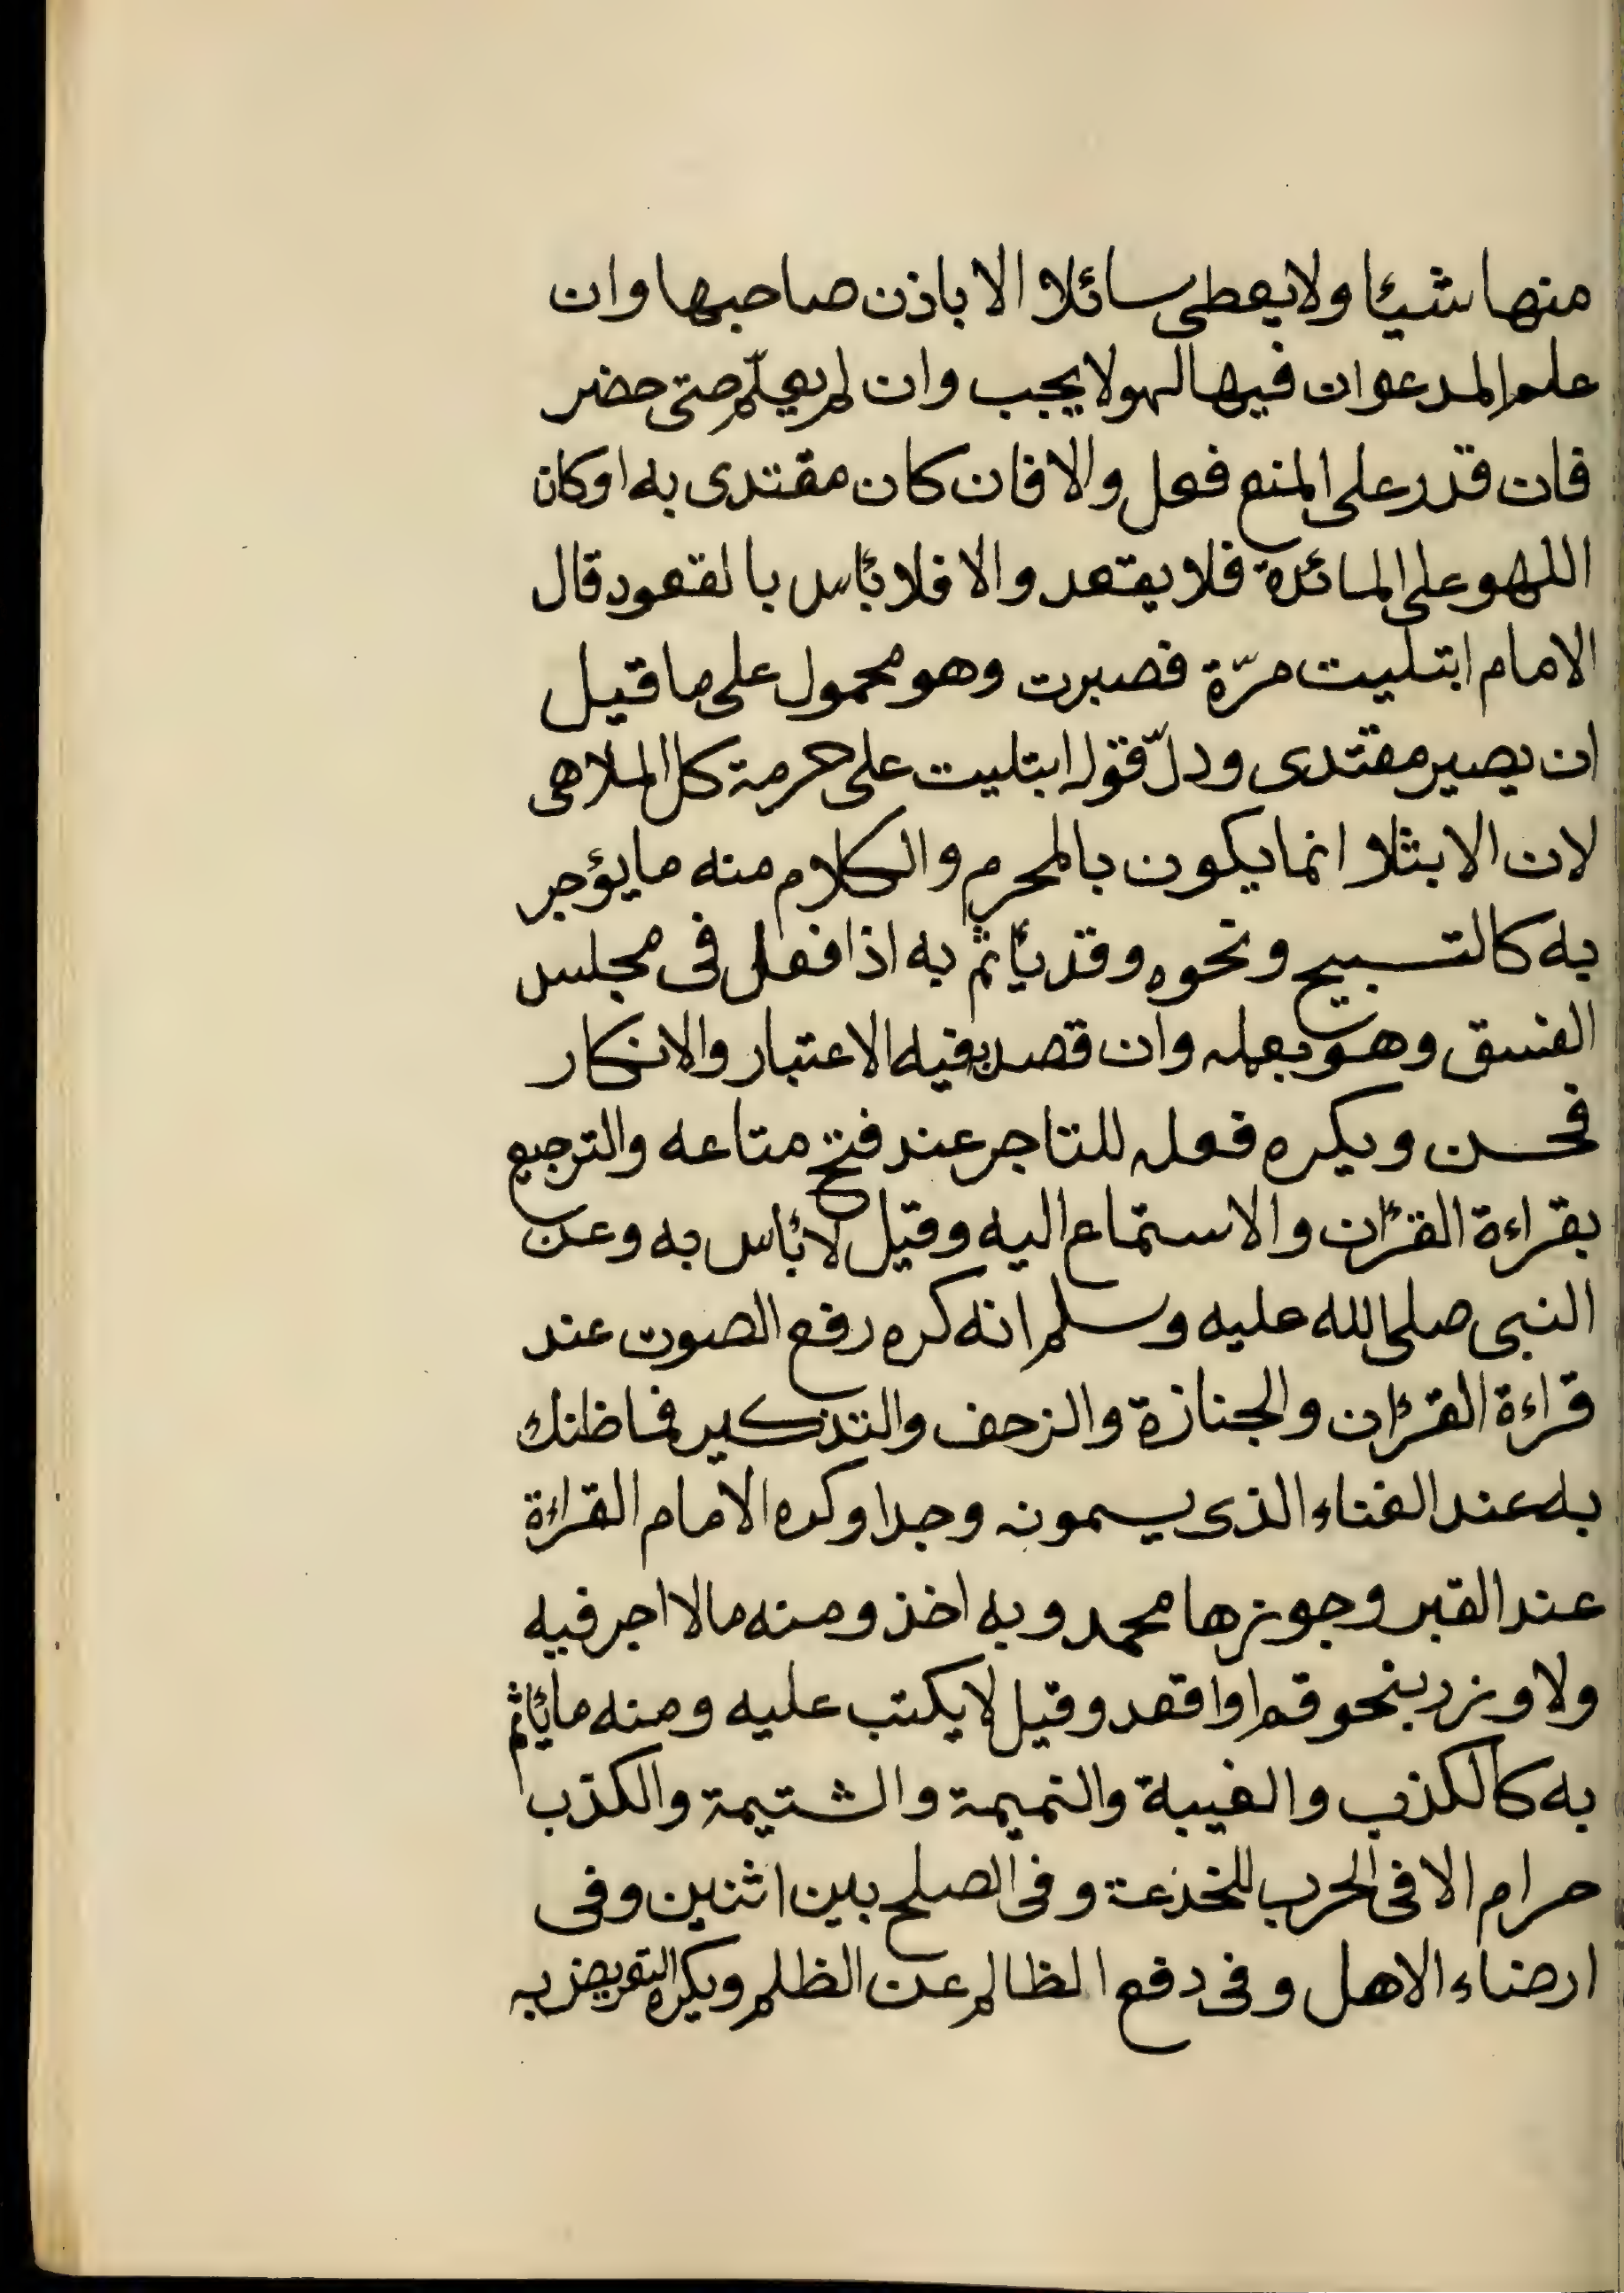 منها شيئا ولا يعطى سائلا الا باذن صاحبها وان
علم المدعوان فيها لهو لا يجب وان لم يعلّم حتى حضر
فان قدر على المنع فعل والا فان كان مقتدى به اوكان
اللهو على المائدة فلا يقعد والا فلا بأس بالقعود قال
الامام ابتليت مرّة فصبرت وهو محمول على ما قيل
ان يصير مقتدى ودلّ قوله ابتليت على حرمة كل الملاهى
لان الابتلا انما يكون بالمحرم والكلام منه ما يؤجر
به كالتسبيح ونحوه وقد يأثم به اذا فعل فى مجلس
الفسق وهو بعمله وان قصد بفيه الاعتبار والانكار
فحسن ويكره فعله للتاجر عند فتح متاعه والترجيع
بقراءة القرأن والاستماع اليه وقيل لا بأس به وعن
النبى صلى الله عليه وسلم انه كره رفع الصوت عند
قراءة القرأن والجنازة والزحف والتذكير فما ظنك
به عند الغناء الذى يسمونه وجدا وكره الامام القراءة
عند القبر وجوزها محمد وبه اخذ ومنه مالا اجر فيه
ولا وزر بنحو قم او اقعد وقيل لا يكتب عليه ومنه ما يأثم
به كالكذب والغيبة والنميمة والشتيمة والكذب
حرام الا فى الحرب للخدعة وفى الصلح بين اثنين وفى
ارضاء الاهل وفى دفع الظالم عن الظلم ويكره التعريض به